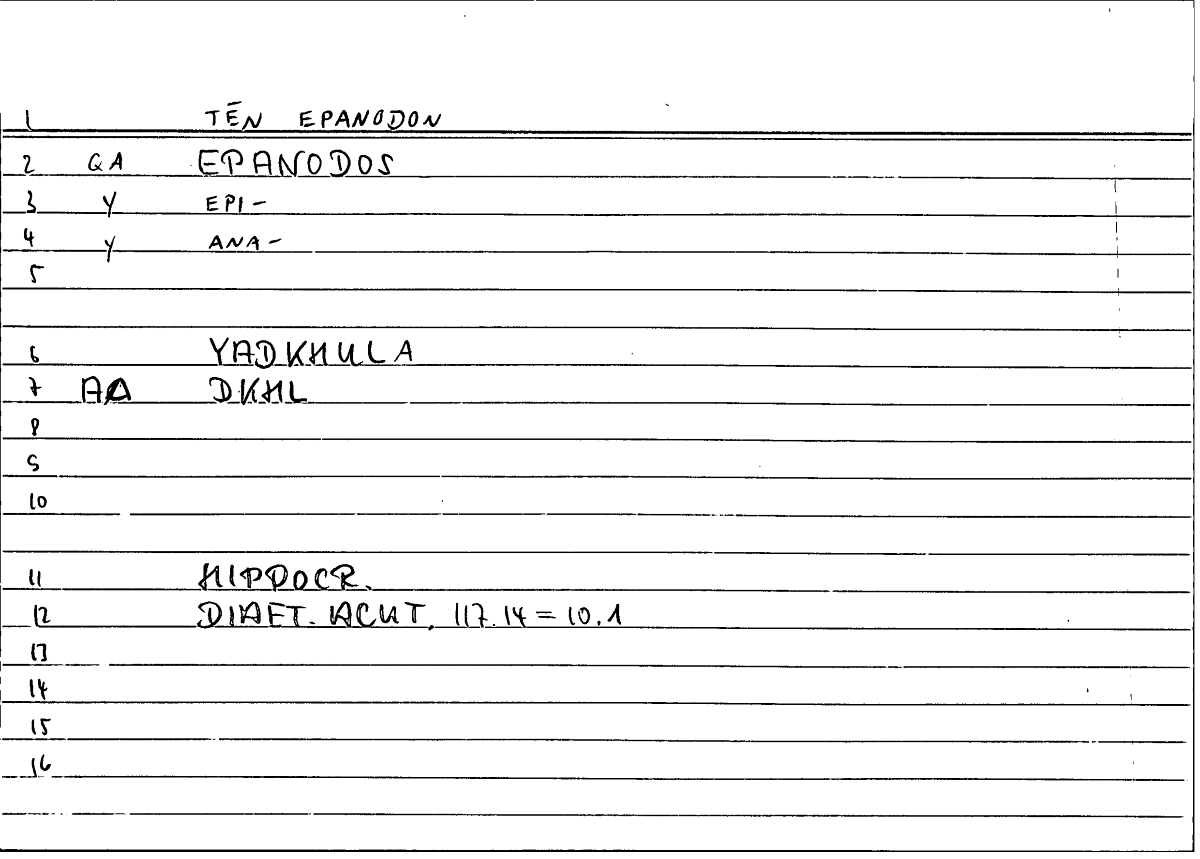 1 TĒN EPANODON
2 QA EPANODOS
3 Y EPI-
4 Y ANA-
5
6 YADKHULA
7 AA DKHL
8
9
10
11 HIPPOCR.
12 DIAET. ACUT. 117.14 = 10.1
13
14
15
16